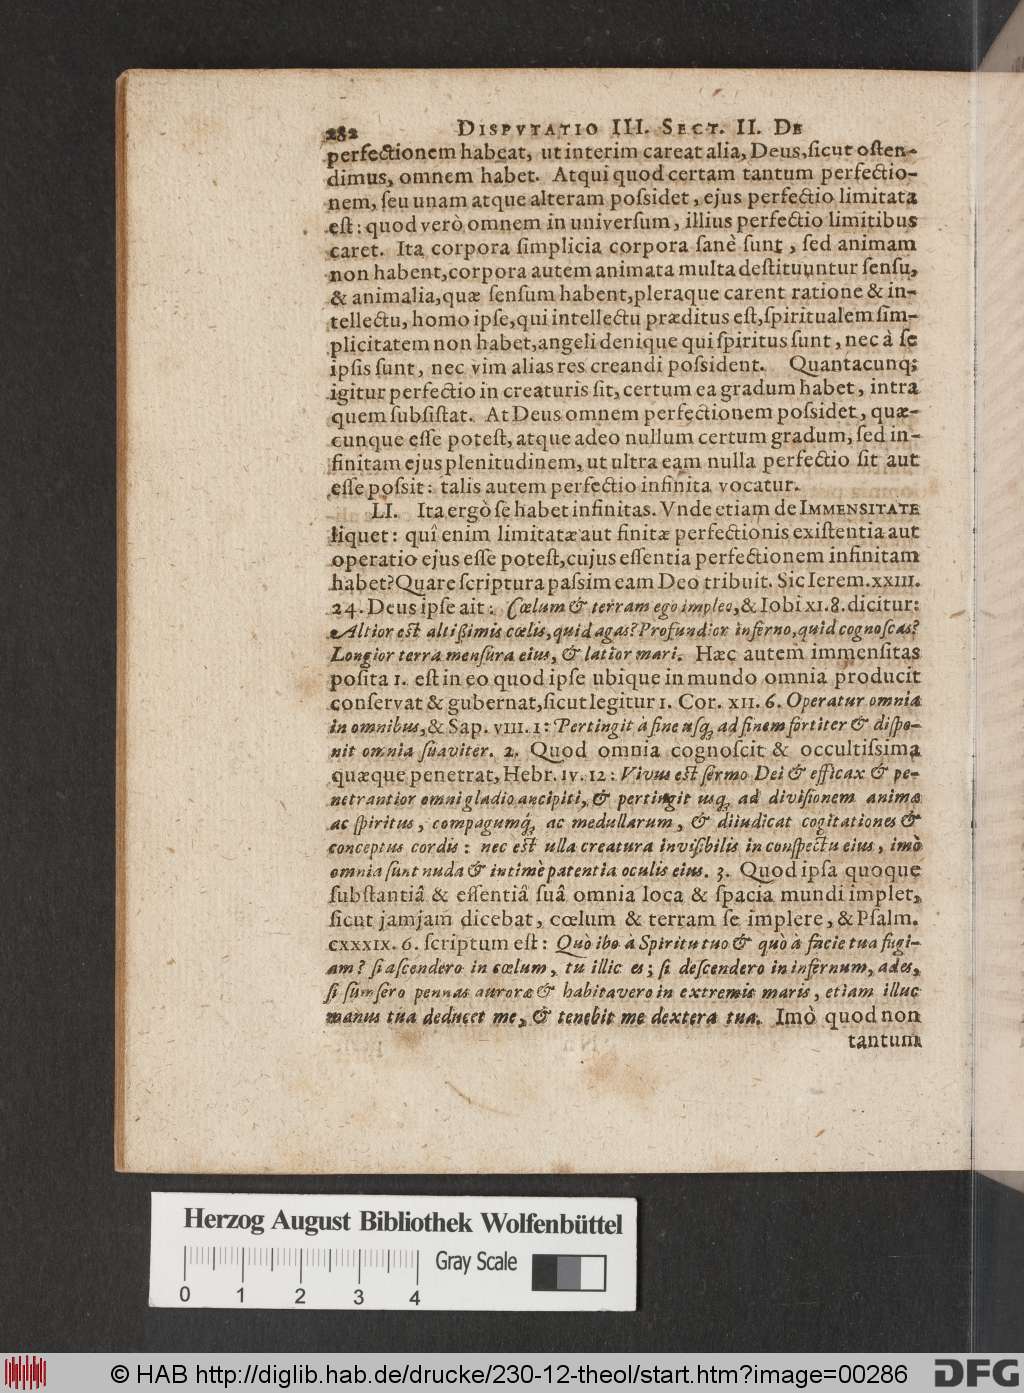 282 DISPVTATIO III. SECT. II. DE
perfectionem habeat, ut interim careat alia, Deus, ſicut oſten-
dimus, omnem habet. Atqui quod certam tantum perfectio-
nem, ſeu unam atque alteram poſsidet, ejus perfectio limitata
eſt: quod verò omnem in univerſum, illius perfectio limitibus
caret. Ita corpora ſimplicia corpora ſanè ſunt, ſed animam
non habent, corpora autem animata multa deſtituuntur ſenſu,
& animalia, quæ ſenſum habent, pleraque carent ratione & in-
tellectu, homo ipſe, qui intellectu præditus eſt, ſpiritualem ſim-
plicitatem non habet, angeli denique qui ſpiritus ſunt, nec à ſe
ipſis ſunt, nec vim alias res creandi poſsident. Quantacunq;
igitur perfectio in creaturis ſit, certum ea gradum habet, intra
quem ſubſiſtat. At Deus omnem perfectionem poſsidet, quæ-
cunque eſſe poteſt, atque adeo nullum certum gradum, ſed in-
finitam ejus plenitudinem, ut ultra eam nulla perfectio ſit aut
eſſe poſsit: talis autem perfectio infinita vocatur.
LI. Ita ergò ſe habet infinitas. Vnde etiam de IMMENSITATE
liquet: quî enim limitatæ aut finitæ perfectionis exiſtentia aut
operatio ejus eſſe poteſt, cujus eſſentia perfectionem infinitam
habet? Quare ſcriptura paſsim eam Deo tribuit. Sic Ierem. XXIII.
24. Deus ipſe ait: Cœlum & terram ego impleo, & Iobi XI. 8. dicitur:
Altior eſt altißimis cœlis, quid agas? Profundior inferno, quid cognoſcas?
Longior terra menſura eius, & latior mari. Hæc autem immenſitas
poſita 1. eſt in eo quod ipſe ubique in mundo omnia producit
conſervat & gubernat, ſicut legitur 1. Cor. XII. 6. Operatur omnia
in omnibus, & Sap. VIII. 1: Pertingit à fine uſq; ad finem fortiter & diſpo-
nit omnia ſuaviter. 2. Quod omnia cognoſcit & occultiſsima
quæque penetrat, Hebr. IV. 12: Vivus eſt ſermo Dei & efficax & pe-
netrantior omni gladio ancipiti, & pertingit usq; ad diviſionem animæ
ac ſpiritus, compagumq́; ac medullarum, & diiudicat cogitationes &
conceptus cordis: nec eſt ulla creatura inviſibilis in conſpectu eius, imò
omnia ſunt nuda & intimè patentia oculis eius. 3. Quod ipſa quoque
ſubſtantiâ & eſſentiâ ſuâ omnia loca & ſpacia mundi implet,
ſicut jamjam dicebat, cœlum & terram ſe implere, & Pſalm.
CXXXIX. 6. ſcriptum eſt: Quò ibo à Spiritu tuo & quò à facie tua fugi-
am? ſi aſcendero in cœlum, tu illic es; ſi deſcendero in infernum, ades,
ſi ſumſero pennas auroræ & habitavero in extremis maris, etiam illuc
manus tua deducet me, & tenebit me dextera tua. Imò quod non
tantum
Herzog August Bibliothek Wolfenbüttel
Gray Scale
0 1 2 3 4
© HAB http://diglib.hab.de/drucke/230-12-theol/start.htm?image=00286 DFG